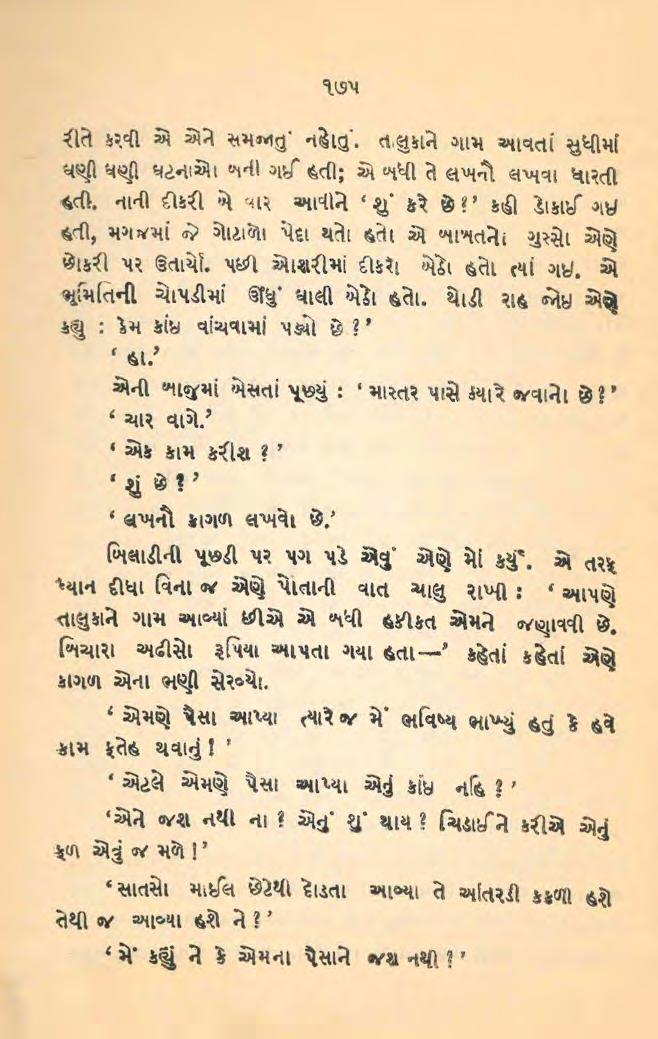 ૧૭૫
રીતે કરવી એ એને સમજાતું નહોતું. તાલુકાને ગામ આવતાં સુધીમાં
ઘણી ઘણી ઘટનાઓ બની ગઈ હતી; એ બધી તે લખનૌ લખવા ધારતી
હતી. નાની દીકરી બે વાર આવીને ‘ શું કરે છે ?’ કહી ડોકાઈ ગઇ
હતી, મગજમાં જે ગોટાળો પેદા થતો હતો એ બાબતનો ગુસ્સો એણે
છોકરી પર ઉતાર્યો. પછી ઓશરીમાં દીકરો બેઠો હતો ત્યાં ગઇ. એ
ભૂમિતિની ચોપડીમાં ઊંધું ઘાલી બેઠો હતો. થોડી રાહ જોઇ એણે
કહ્યુ : કેમ કાંઇ વાંચવામાં પડ્યો છે ? ’
‘ હા.’
એની બાજુમાં બેસતાં પૂછયું : ‘ માસ્તર પાસે ક્યારે જવાનો છે ? ’
‘ ચાર વાગે.’
‘ એક કામ કરીશ ? ’
‘ શું છે ? ’
‘ લખનૌ કાગળ લખવો છે.’
બિલાડીની પૂછડી પર પગ પડે એવું એણે મોં કર્યું. એ તરફ
ધ્યાન દીધા વિના જ એણે પોતાની વાત ચાલુ રાખી : ‘ આપણે
તાલુકાને ગામ આવ્યાં છીએ એ બધી હકીકત એમને જણાવવી છે.
બિચારા અઢીસો રૂપિયા આપતા ગયા હતા—’ કહેતાં કહેતાં એણે
કાગળ એના ભણી સેરવ્યો.
‘ એમણે પૈસા આપ્યા ત્યારે જ મેં ભવિષ્ય ભાખ્યું હતું કે હવે
કામ ફતેહ થવાનું ! ’
‘ એટલે એમણે પૈસા આપ્યા એનું કાંઇ નહિ ? ’
‘એને જશ નથી ના ? એનું શું થાય ? ચિડાઈને કરીએ એનું
ફળ એવું જ મળે !’
‘ સાતસો માઈલ છેટેથી દોડતા આવ્યા તે આંતરડી કકળી હશે
તેથી જ આવ્યા હશે ને ? ’
‘ મેં કહ્યું ને કે એમના પૈસાને જશ નથી ? ’